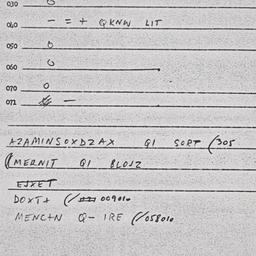 030 0
040 - = + QKNW LIT
050 0
060 0
070 0
072 -
AZAMINSOXDZAX QI SORT (305
(MERNIT QI BLOJZ
EJXET
DOXT+ (/ 009010
MENC+N Q- IRE (/058010